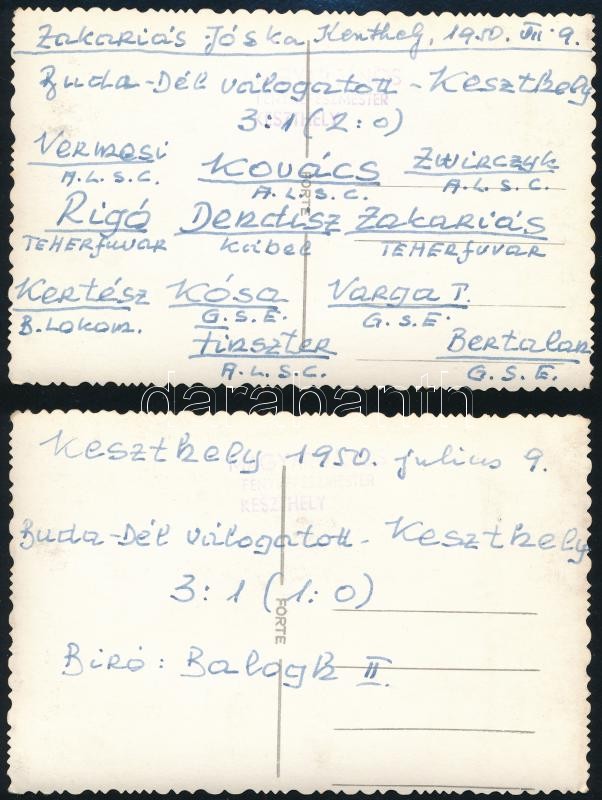 Zakariás Jóska, Kenthely, 1950. VII. 9.
Buda-Dél válogatott - Keszthely
FÉNYKÉPÉSZMESTER
KESZTHELY
3:1 (2:0)
Vermesi Kovács Zwirczyk
A.L.S.C. A.L.S.C. A.L.S.C.
FORTE
Rigó Derdisz Zakariás
TEHERfuvar Kábel TEHERfuvar
Kertész Kósa Varga T.
B.Lokom. G.S.E. G.S.E.
Finszter Bertalan
A.L.S.C. G.S.E.
darabanth
Keszthely 1950. július 9.
FÉNYKÉPÉSZMESTER
KESZTHELY
Buda-Dél válogatott - Keszthely
3:1 (1:0)
FORTE
Biró: Balogh II.